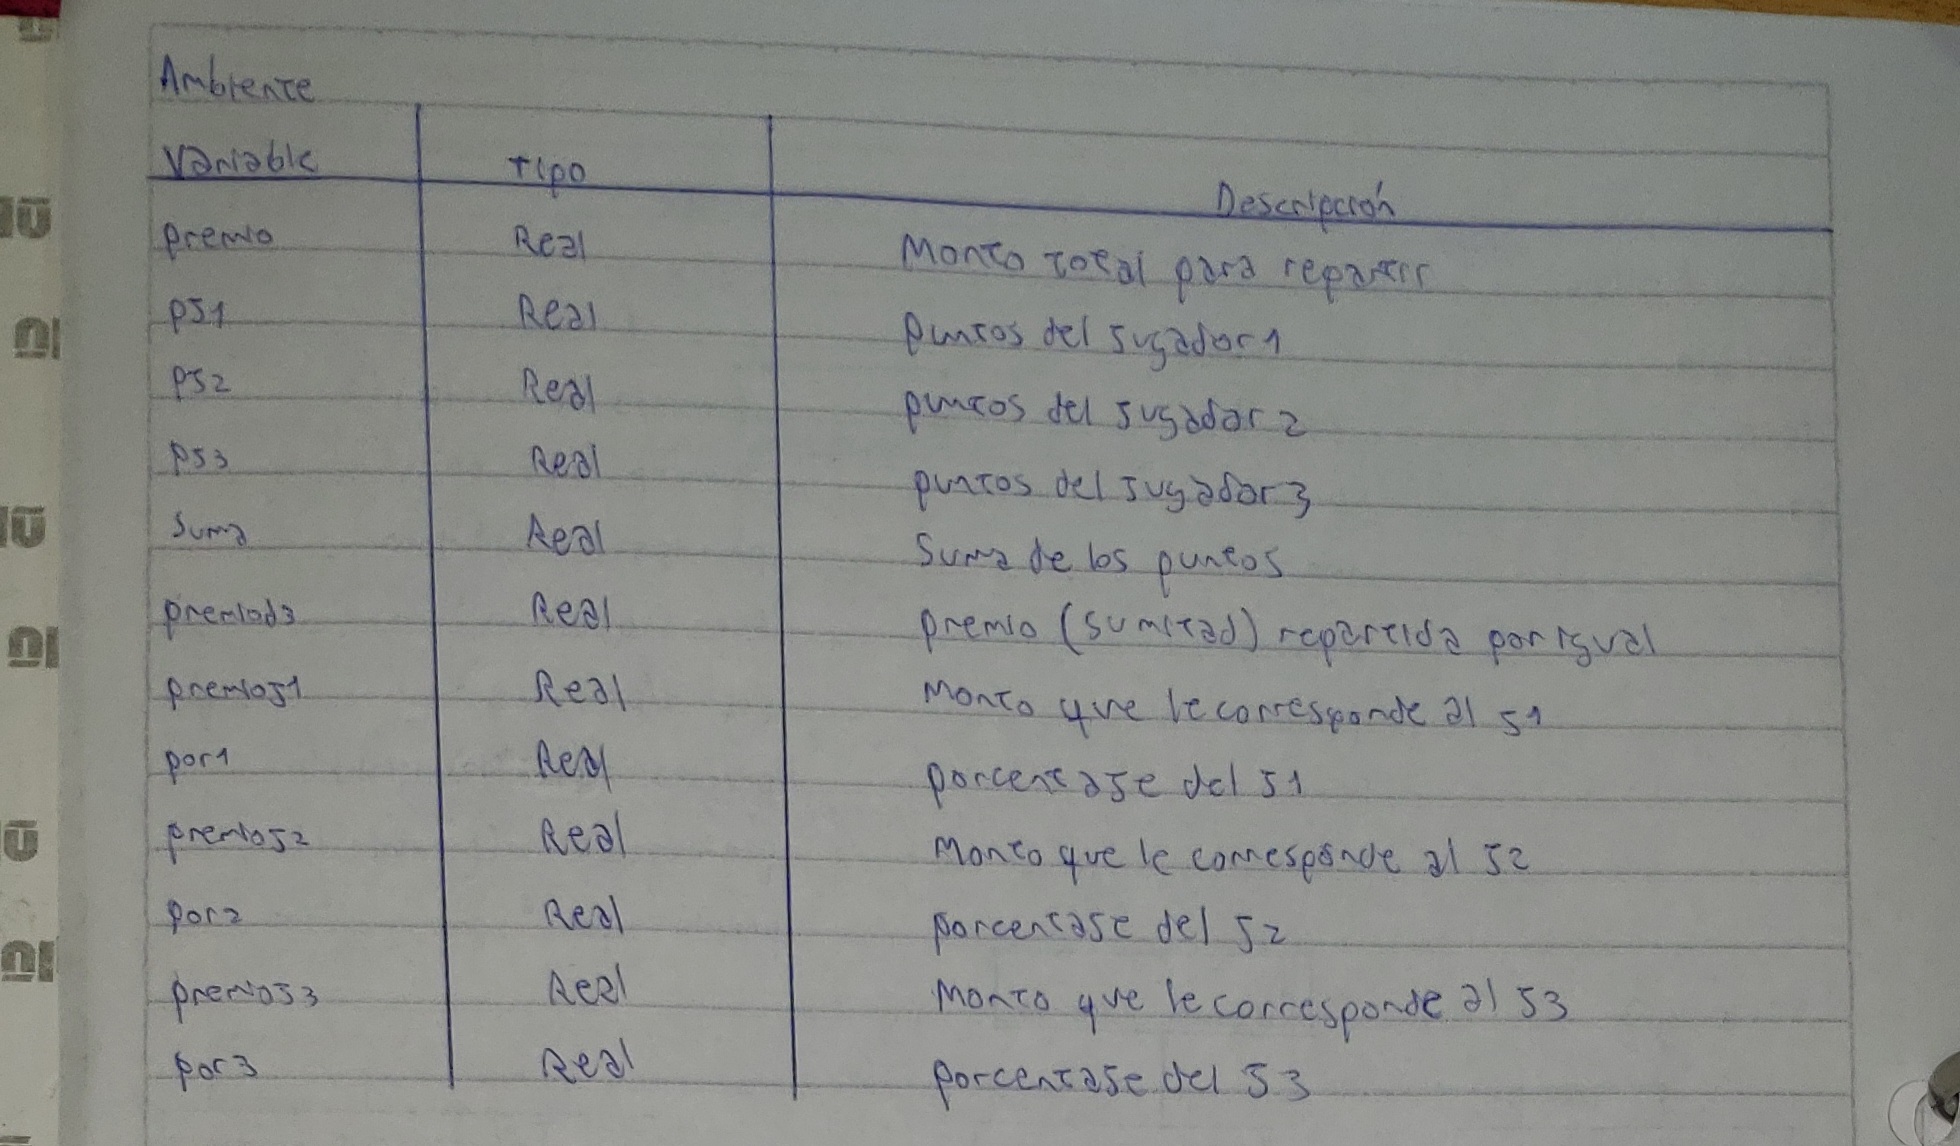 Ambiente
Variable tipo Descripción
premio Real Monto total para repartir
pJ1 Real puntos del Jugador 1
pJ2 Real puntos del Jugador 2
pJ3 Real puntos del Jugador 3
Suma Real Suma de los puntos
premiod3 Real premio (su mitad) repartida por igual
premioJ1 Real Monto que le corresponde al J1
por1 Real porcentaje del J1
premioJ2 Real Monto que le corresponde al J2
por2 Real porcentaje del J2
premioJ3 Real Monto que le corresponde al J3
por3 Real porcentaje del J3